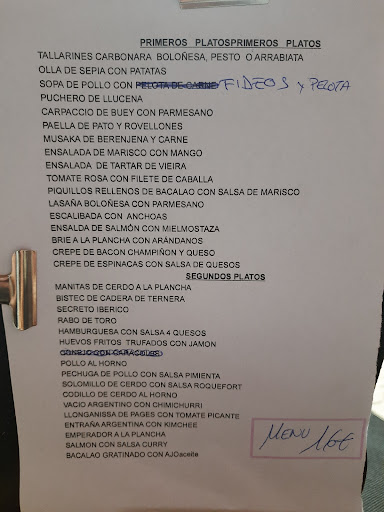 PRIMEROS PLATOSPRIMEROS PLATOS
TALLARINES CARBONARA BOLOÑESA, PESTO O ARRABIATA
OLLA DE SEPIA CON PATATAS
SOPA DE POLLO CON PELOTA DE CARNE FIDEOS y PELOTA
PUCHERO DE LLUCENA
CARPACCIO DE BUEY CON PARMESANO
PAELLA DE PATO Y ROVELLONES
MUSAKA DE BERENJENA Y CARNE
ENSALADA DE MARISCO CON MANGO
ENSALADA DE TARTAR DE VIEIRA
TOMATE ROSA CON FILETE DE CABALLA
PIQUILLOS RELLENOS DE BACALAO CON SALSA DE MARISCO
LASAÑA BOLOÑESA CON PARMESANO
ESCALIBADA CON ANCHOAS
ENSALDA DE SALMÓN CON MIELMOSTAZA
BRIE A LA PLANCHA CON ARÁNDANOS
CREPE DE BACON CHAMPIÑON Y QUESO
CREPE DE ESPINACAS CON SALSA DE QUESOS
SEGUNDOS PLATOS
MANITAS DE CERDO A LA PLANCHA
BISTEC DE CADERA DE TERNERA
SECRETO IBERICO
RABO DE TORO
HAMBURGUESA CON SALSA 4 QUESOS
HUEVOS FRITOS TRUFADOS CON JAMON
CONEJO CON CARACOLES
POLLO AL HORNO
PECHUGA DE POLLO CON SALSA PIMIENTA
SOLOMILLO DE CERDO CON SALSA ROQUEFORT
CODILLO DE CERDO AL HORNO
VACIO ARGENTINO CON CHIMICHURRI
LLONGANISSA DE PAGES CON TOMATE PICANTE
ENTRAÑA ARGENTINA CON KIMCHEE
EMPERADOR A LA PLANCHA
SALMON CON SALSA CURRY
BACALAO GRATINADO CON AJOaceite
MENU 16€